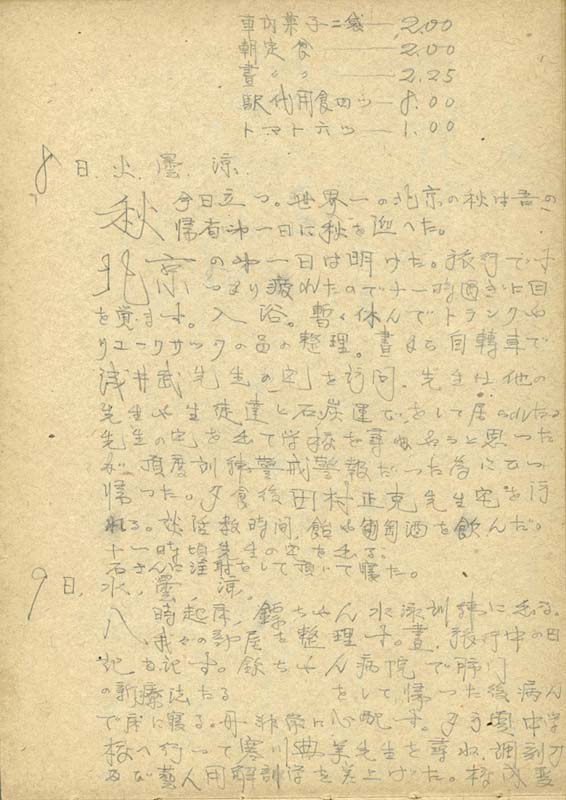 車内菓子二袋 — 2.00
朝定食 — 2.00
晝〃〃 — 2.25
駅代用食四ツ — 8.00
トマト六ツ — 1.00
8日、火、曇、涼、
秋 今日立つ。世界一の北京の秋は吾の
帰省第一日に秋を迎へた。
北京の第一日は明けた。旅行です
っかり疲れたので十一時過ぎに目
を覚ます。入浴。暫く休んでトランクや
リュークサックの品の整理。晝から自轉車で
浅井武先生の宅を訪問、先生は他の
先生や生徒達と石炭運びをして居られたる
先生の宅を去て学校を尋ねようと思った
が、頂度訓練警戒警報だった為に
帰った。夕食後田村正克先生宅を訪
れる。談話数時間、飴や葡萄酒を飲んだ。
十一時頃先生の宅を去る。
石さんに注射をして頂いて寝た。
9日、水、曇、涼、
八時起床、鏢ちゃん水泳訓練に去る。
我々の部屋を整理す。晝、旅行中の日
記を記す。鉄ちゃん病院で肺门
の新療法たる をして帰った後病人
で床に寝る。母非常に心配す。夕方頃中学
校へ行って寒川典美先生を尋ね、調刻
藝人用解剖学を差上げた。校